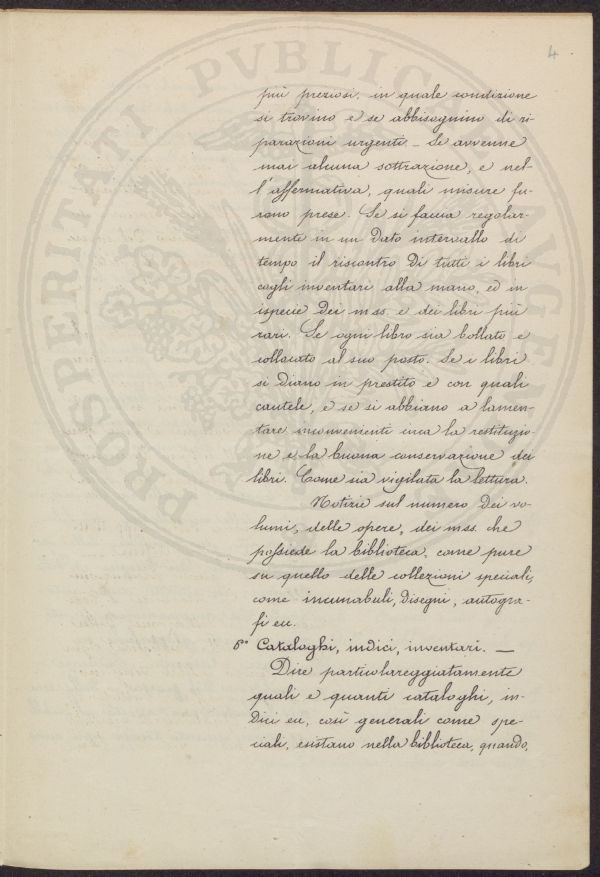 4
più preziosi, in quale condizione
si trovino e se abbisognino di ri
parazioni urgenti - Se avvenne
mai alcuna sottrazione, e nel-
l'affermativa, quali misure fu-
rono prese. Se si faccia regolar-
mente in un dato intervallo di
tempo il riscontro di tutti i libri
cogli inventari alla mano, ed in
ispecie dei mss. e dei libri più
rari. Se ogni libro sia bollato e
collocato al suo posto. Se i libri
si diano in prestito e con quali
cautele, e se si abbiano a lamen-
tare inconvenienti circa la restituzio-
ne e la buona conservazione dei
libri. Come sia vigilata la lettura.
Notizie sul numero dei vo-
lumi, delle opere, dei mss. che
possiede la biblioteca, come pure
su quello delle collezioni speciali,
come incunabuli, disegni, autogra-
fi ecc.
Cataloghi, indici, inventari. —
Dire particolareggiatamente
quali e quanti cataloghi, in-
dici ecc. così generali come spe-
ciali, esistano nella biblioteca, quando,
PROSPERITATI PVBLICAE AVGENDAE